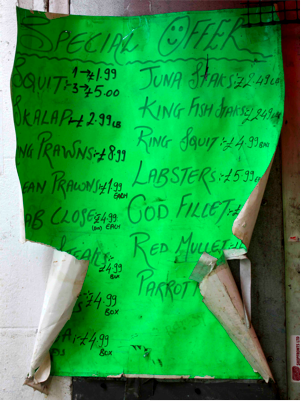 SPECIAL OFFER
SQUIT:- 1→£1.99
3→£5.00
SKALAP:- £2.99 LB
NG PRAWNS:- £8.99
EAN PRAWNS:- £1.99 EACH
AB CLOSE £4.99
BOX EACH
STEAK
£4.99
BOX
£4.99
BOX
£4.99
BOX
JUNA STAKS:- £2.49 LB
KING FISH STAKS:- £2.49 LB
RING SQUIT:- £4.99 BOX
LABSTERS:- £5.99
COD FILLET:- £
RED MULLET:-
PARROT